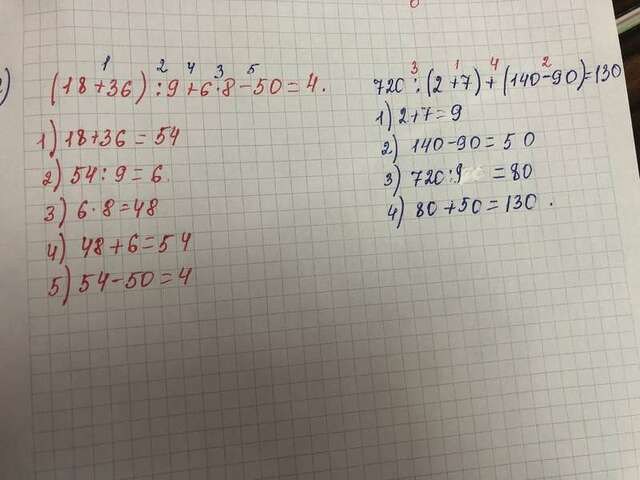 1 2 4 3 5
(18+36):9+6·8-50=4.
1) 18+36=54
2) 54:9=6
3) 6·8=48
4) 48+6=54
5) 54-50=4
3 1 4 2
720:(2+7)+(140-90)=130
1) 2+7=9
2) 140-90=50
3) 720:9=80
4) 80+50=130.